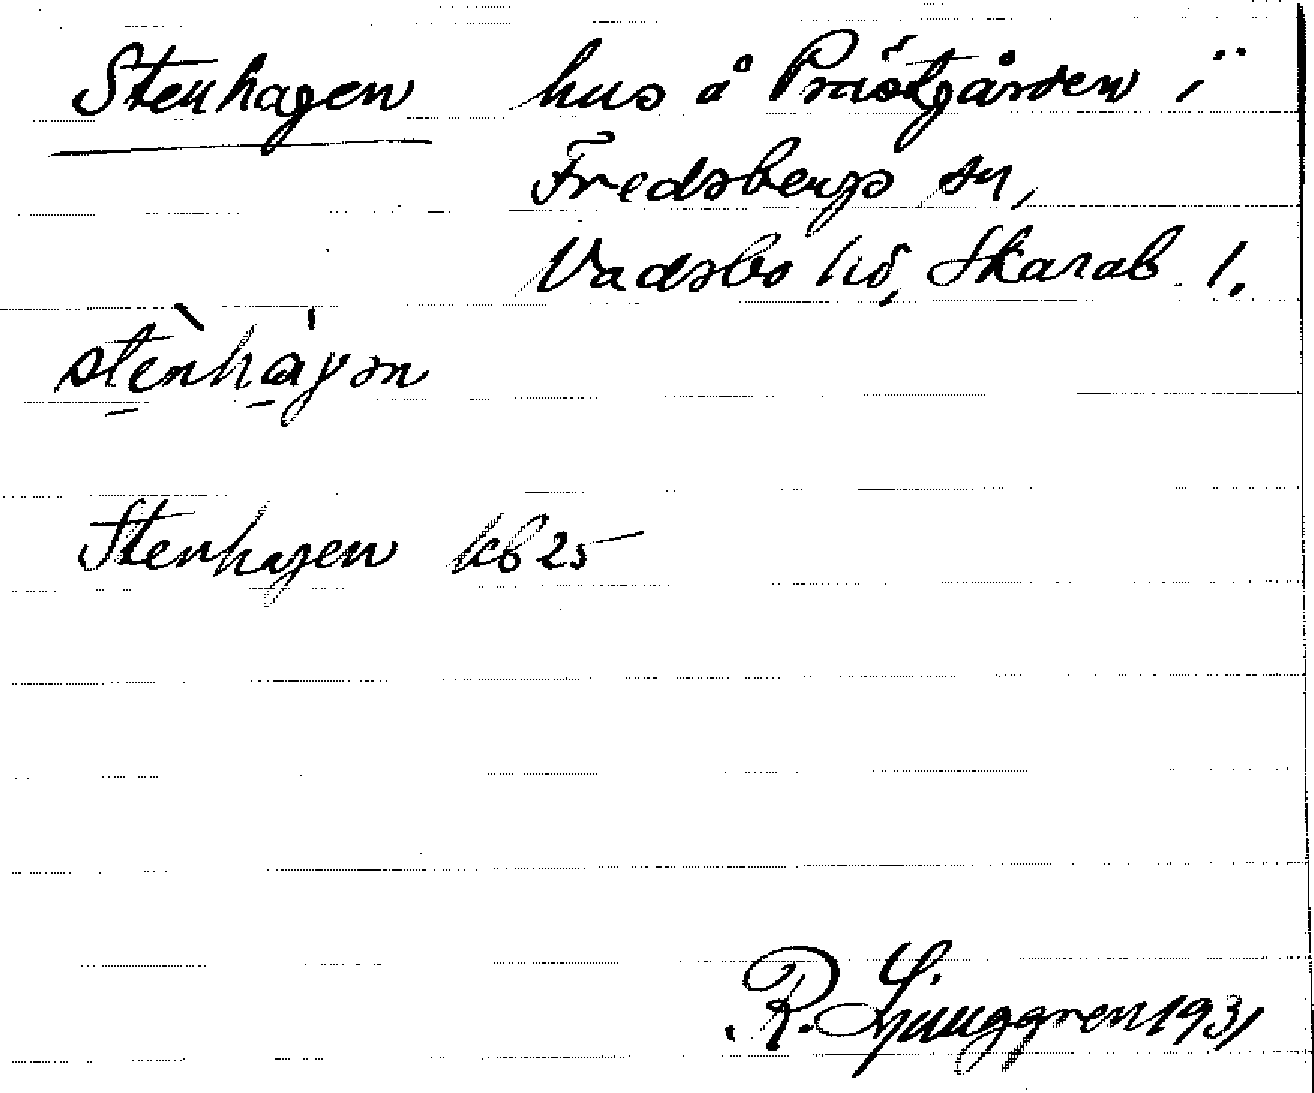 Stenhagen hus å Prästgården i
Fredsbergs sn,
Vadsbo hd, Skarab. l.
stènhágən
Stenhagen kb 25
R. Ljunggren 1931